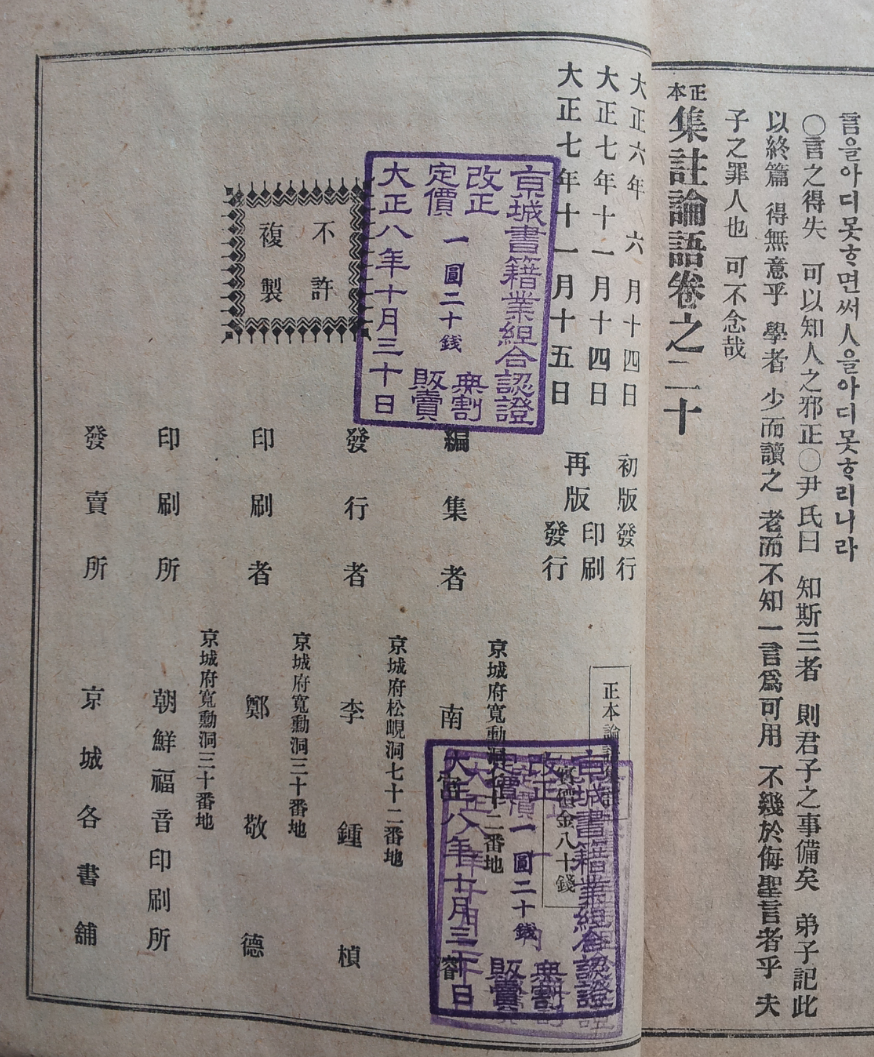 言을아디못ᄒᆞ면써人을아디못ᄒᆞ리니라
○言之得失 可以知人之邪正○尹氏曰 知斯三者 則君子之事備矣 弟子記此
以終篇 得無意乎 學者 少而讀之 老而不知一言爲可用 不幾於侮聖言者乎 夫
子之罪人也 可不念哉
正本集註論語卷之二十
大正六年 六 月十四日 初版發行
大正七年十一月十四日 再版印刷
大正七年十一月十五日 發行
正本論語集註
金八十錢
京城書籍業組合認證
改正
定價
一圓二十錢
無割
販賣
大正八年十月三十日
不許
複製
京城府寬勳洞 十二番地
編集者 南
京城府松峴洞七十二番地
發行者 李鍾楨
京城府寬勳洞三十番地
印刷者 鄭敬德
京城府寬勳洞三十番地
印刷所 朝鮮福音印刷所
發賣所 京城各書舖
京城書籍業組合認證
改正
定價
一圓二十錢
無割
販賣
大正八年十月三十日